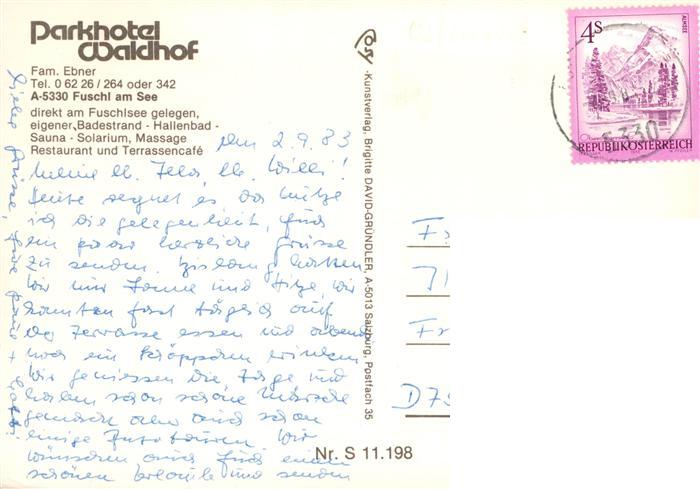 Parkhotel
Waldhof
Fam. Ebner
Tel. 0 62 26 / 264 oder 342
A-5330 Fuschl am See
direkt am Fuschlsee gelegen,
eigener Badestrand - Hallenbad -
Sauna - Solarium, Massage
Restaurant und Terrassencafé
den 2.9.83
Meine lb. Willi!
Heute regnet es, da nütze
ich die gelegenheit, Euch
ein paar herzliche Grüsse
zu senden. Bislang hatten
wir nur Sonne und Hitze, wir
konnten fast täglich auf
der Terrasse essen und abends
noch ein trinken.
Wir geniessen die Tage und
haben schon schöne Märsche
gemacht aber auch schon
einige Autotouren. Wir
wünschen auch Euch einen
schönen und senden
liebe Grüsse, Eure
Kunstverlag, Brigitte DAVID-GRÜNDLER, A-5013 Salzburg, Postfach 35
Nr. S 11.198
4S
ALMSEE
REPUBLIK ÖSTERREICH
5330
Fr
D 75